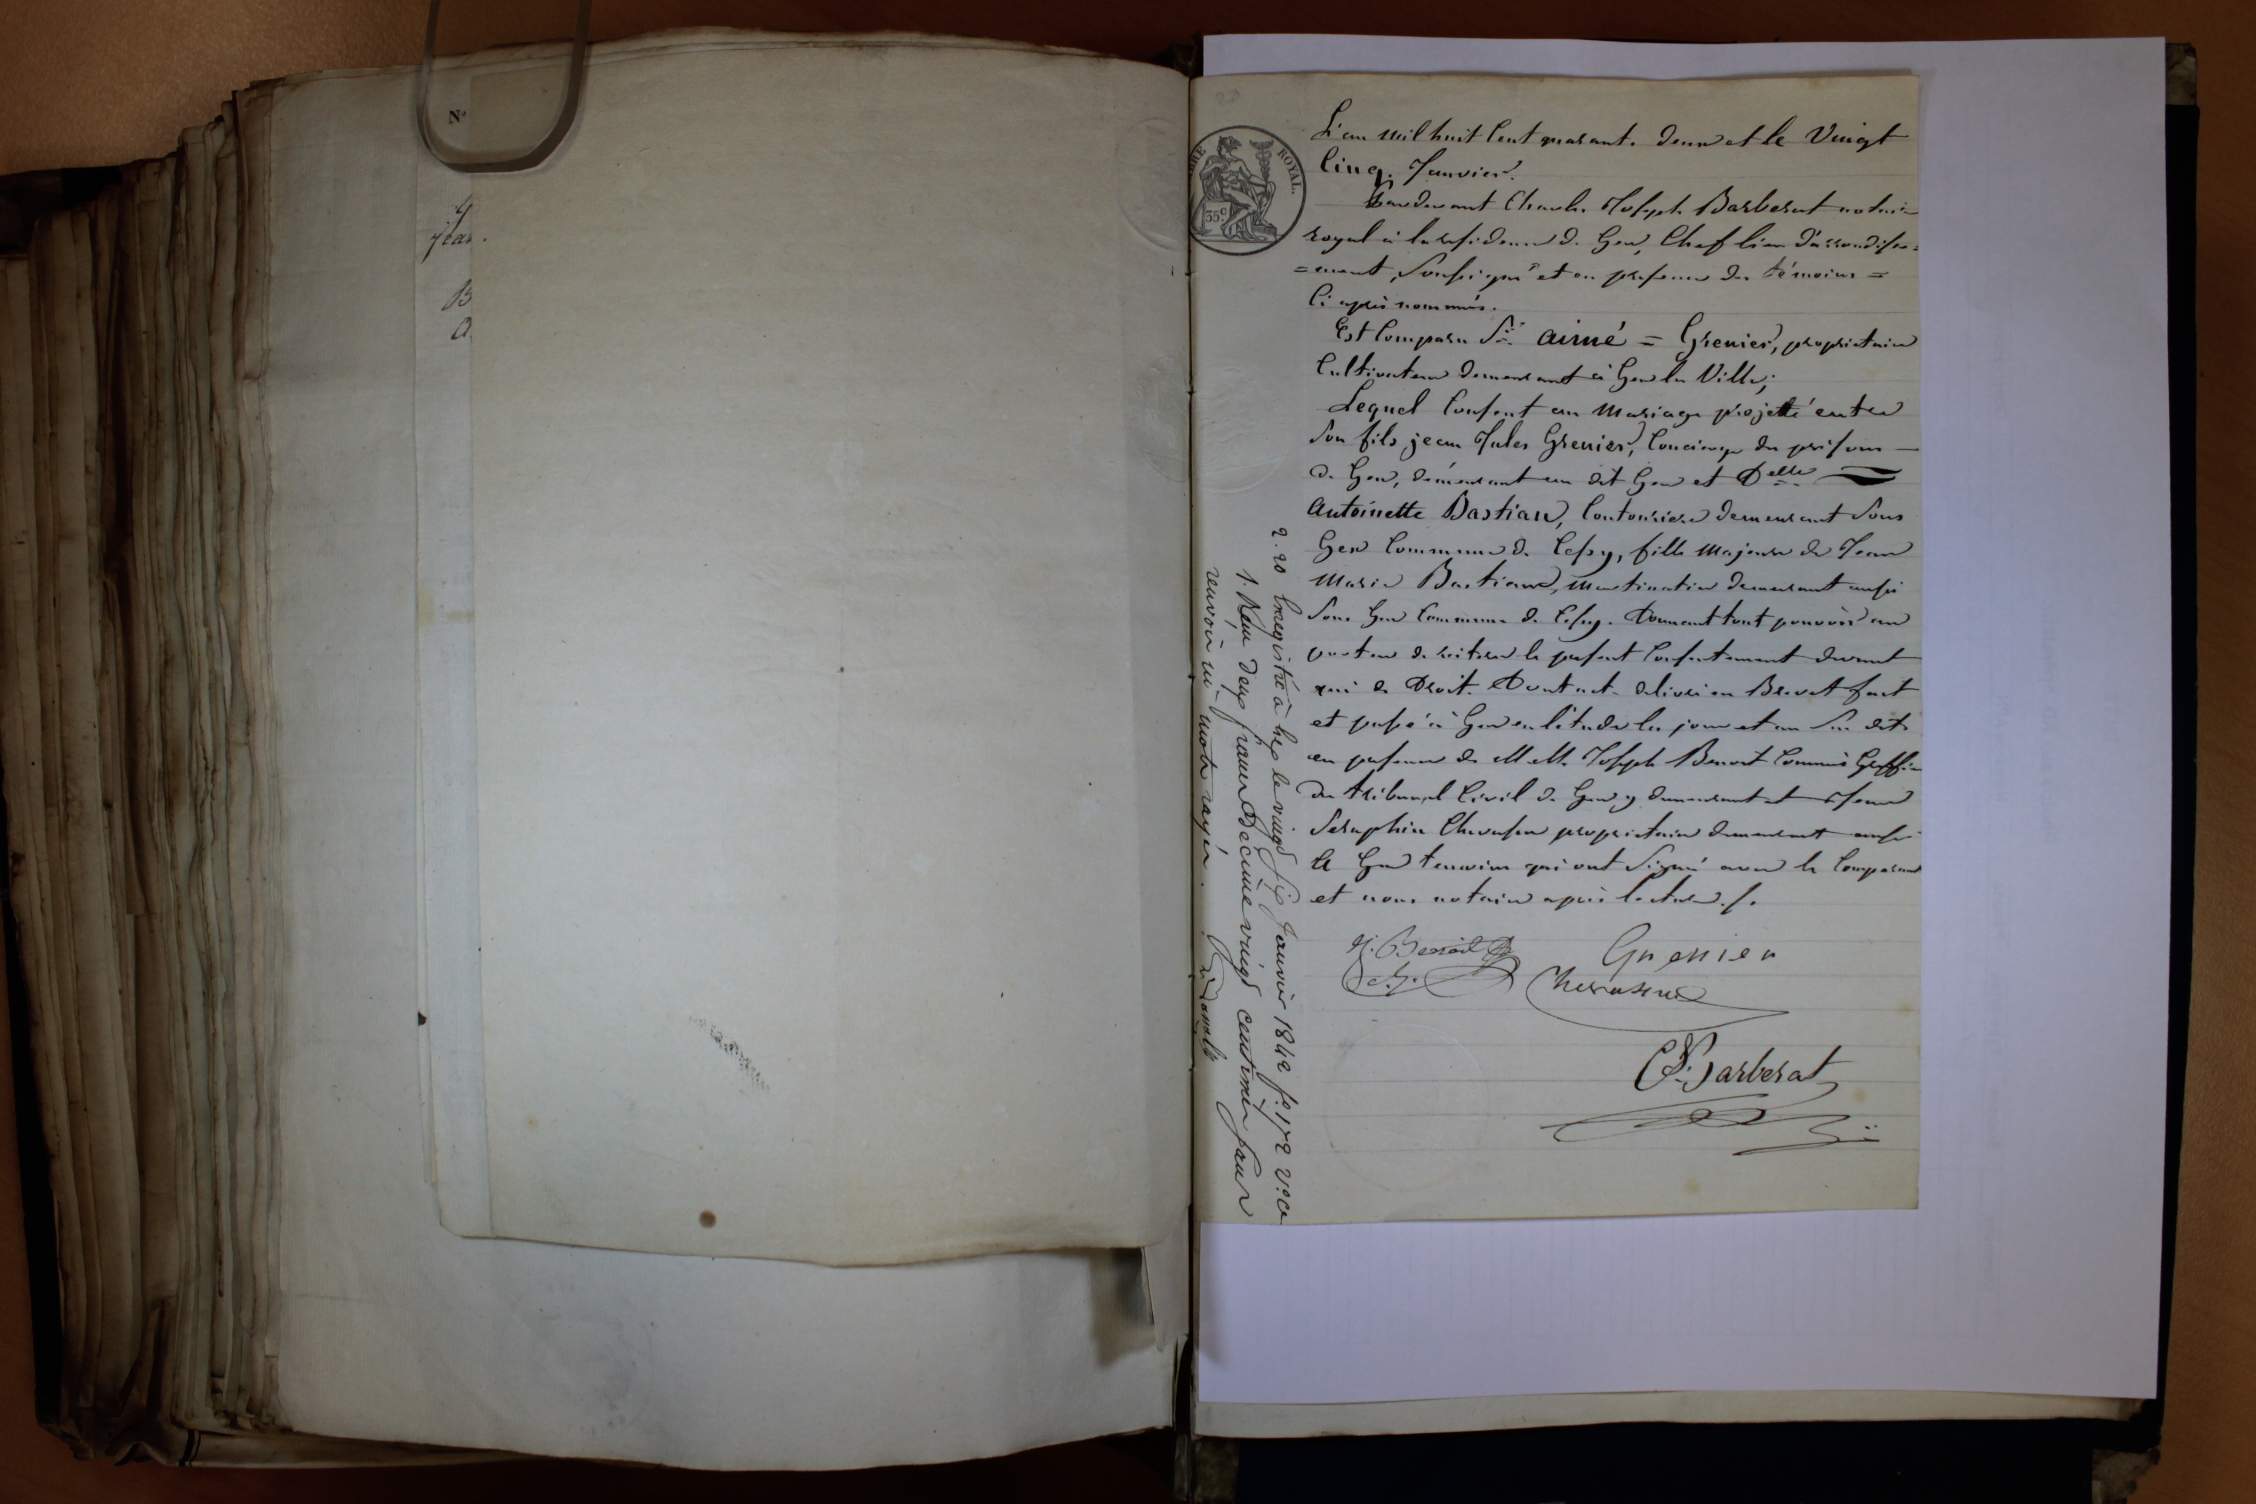 Nº
B
TIMBRE ROYAL.
35c
L'an mil huit Cent quarante deux et le Vingt
Cinq. Janvier.
Pardevant Charles Joseph Barberat notaire
royal à la résidence de Gex, Chef lieu d'arrondisse=
=ment, Soussigné et en présence des témoins =
Ci après nommés.
Est Comparu Sr. aimé = Grenier, propriétaire
Cultivateur demeurant à Gex la Ville;
Lequel Consent au Mariage projetté entre
Son fils jean Jules Grenier, Concierge des prisons —
de Gex, demeurant au dit Gex et Delle
Antoinette Bastian, Couturiere demeurant Sous
Gex Commune de Cessy, fille Majeure de Jean
Marie Bastian, demeurant aussi
Sous Gex Commune de Cessy. Donnant tout pouvoir au
porteur de réiterer le présent Consentement devant
qui de Droit. Dont acte délivré en Brevet fait
et passé à Gex en l'étude les jour et an Sus dits
en présence de MM. Joseph Benoit Commis Greffier
du tribunal Civil de Gex y demeurant et
Seraphin propriétaire demeurant aussi
à Gex temoins qui ont Signé avec le Comparant
et nous notaire après lecture./.
J. Benoit
Grenier
C. J. Barberat
2.20 Enregistré à Gex le vingt six Janvier 1842 fo. 172 Vo. Ce
1. Reçu deux francs Décime vingt centimes sans
renvoi ni mots rayés.